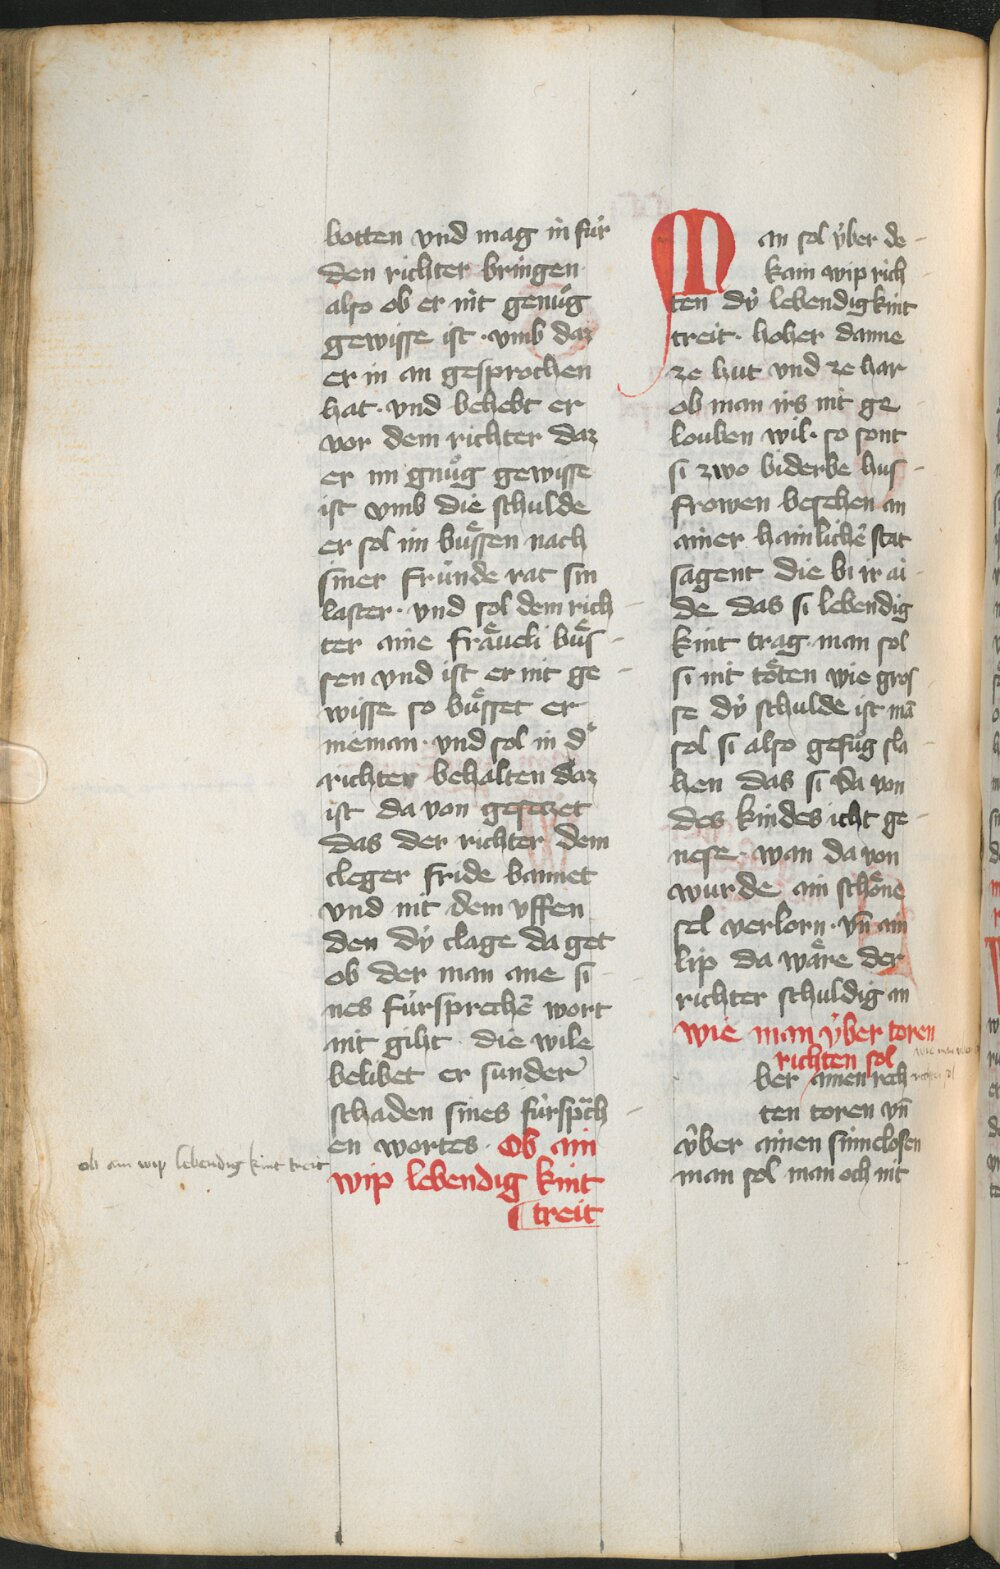 botten vnd mag in fúr
den richter bringen
also ob er nit genuͦg
gewisse ist · vmb daz
er in an gesprochen
hat · vnd behebt er
vor dem richter daz
er im gnuͦg gewisse
ist vmb die schulde
er sol im buͤssen nach
siner fründe rat sin
laster · vnd sol dem rich
ter aine fraͤueli buͤs
sen vnd ist er nit ge
wisse so buͤsset er
nieman · vnd sol in d͛
richter behalten daz
ist da von gesetzet
das der richter dem
cleger fride bannet
vnd nit dem vffen
den dẏ clage da get
ob der man ane si
nes fúrsprechē wort
nit giht · die wile
belibet er sunder
schaden sines fúrsp̄ch
en wortes · Ob ain
wip lebendig kint
treit
ob ain wip lebendig kint treit
Man sol v́ber de
kain wip rich
ten dẏ lebendig kint
treit · hoher danne
ze hut vnd ze har
ob man irs nit ge
louben wil · so sont
si zwo biderbe hus
frowen besehen an
ainer hainlichē stat
sagent die bi ir ai
de das si lebendig
kint trag man sol
si nit toͤten wie gros
se dẏ schulde ist mā
sol si also gefuͦg sla
hen das si da von
des kindes icht ge
nese · wan da von
wurde ain schoͤne
sel verlorn · vn̄ ain
lip da waͤre der
richter schuldig an
wie man v́ber toren
richten sol
ber ainen rech
ten toren vn̄
v́ber ainen sinnelosen
man sol man och nit